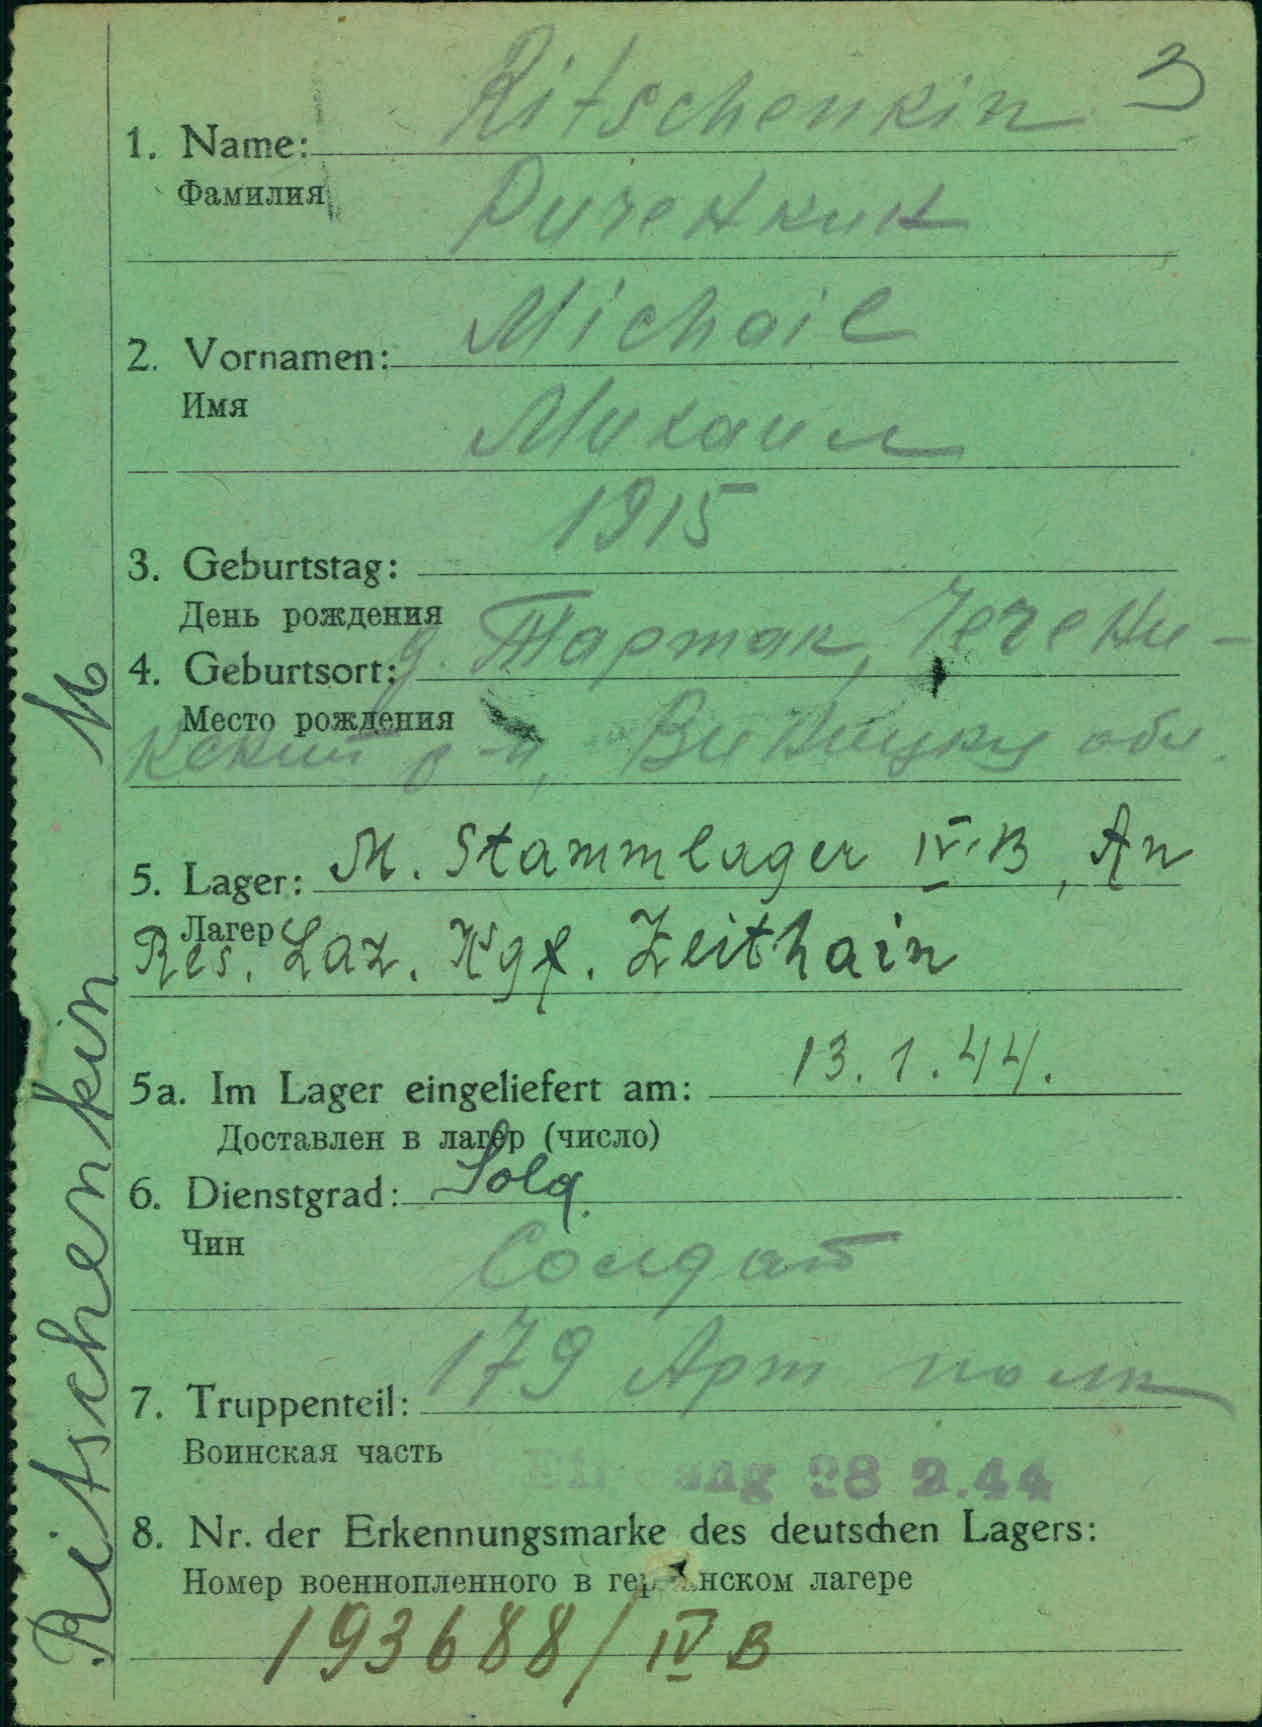 3
Ritschenkin
1. Name:
Фамилия
Риченкин
Michail
2. Vornamen:
Имя
Михаил
1915
3. Geburtstag:
День рождения
д. Тартак, Чечени-
4. Geburtsort:
Место рождения
кский р-н, Виницкий обл.
5. Lager: M. Stammlager IV.B, An
Лагер
Res. Laz. Kgf. Zeithain
5a. Im Lager eingeliefert am: 13.1.44.
Доставлен в лагер (число)
6. Dienstgrad: Sold.
Чин
Солдат
179 Арт полк
7. Truppenteil:
Воинская часть
Eingang 28 2.44
8. Nr. der Erkennungsmarke des deutschen Lagers:
Номер военнопленного в германском лагере
193688/IV B
Ritschenkin M